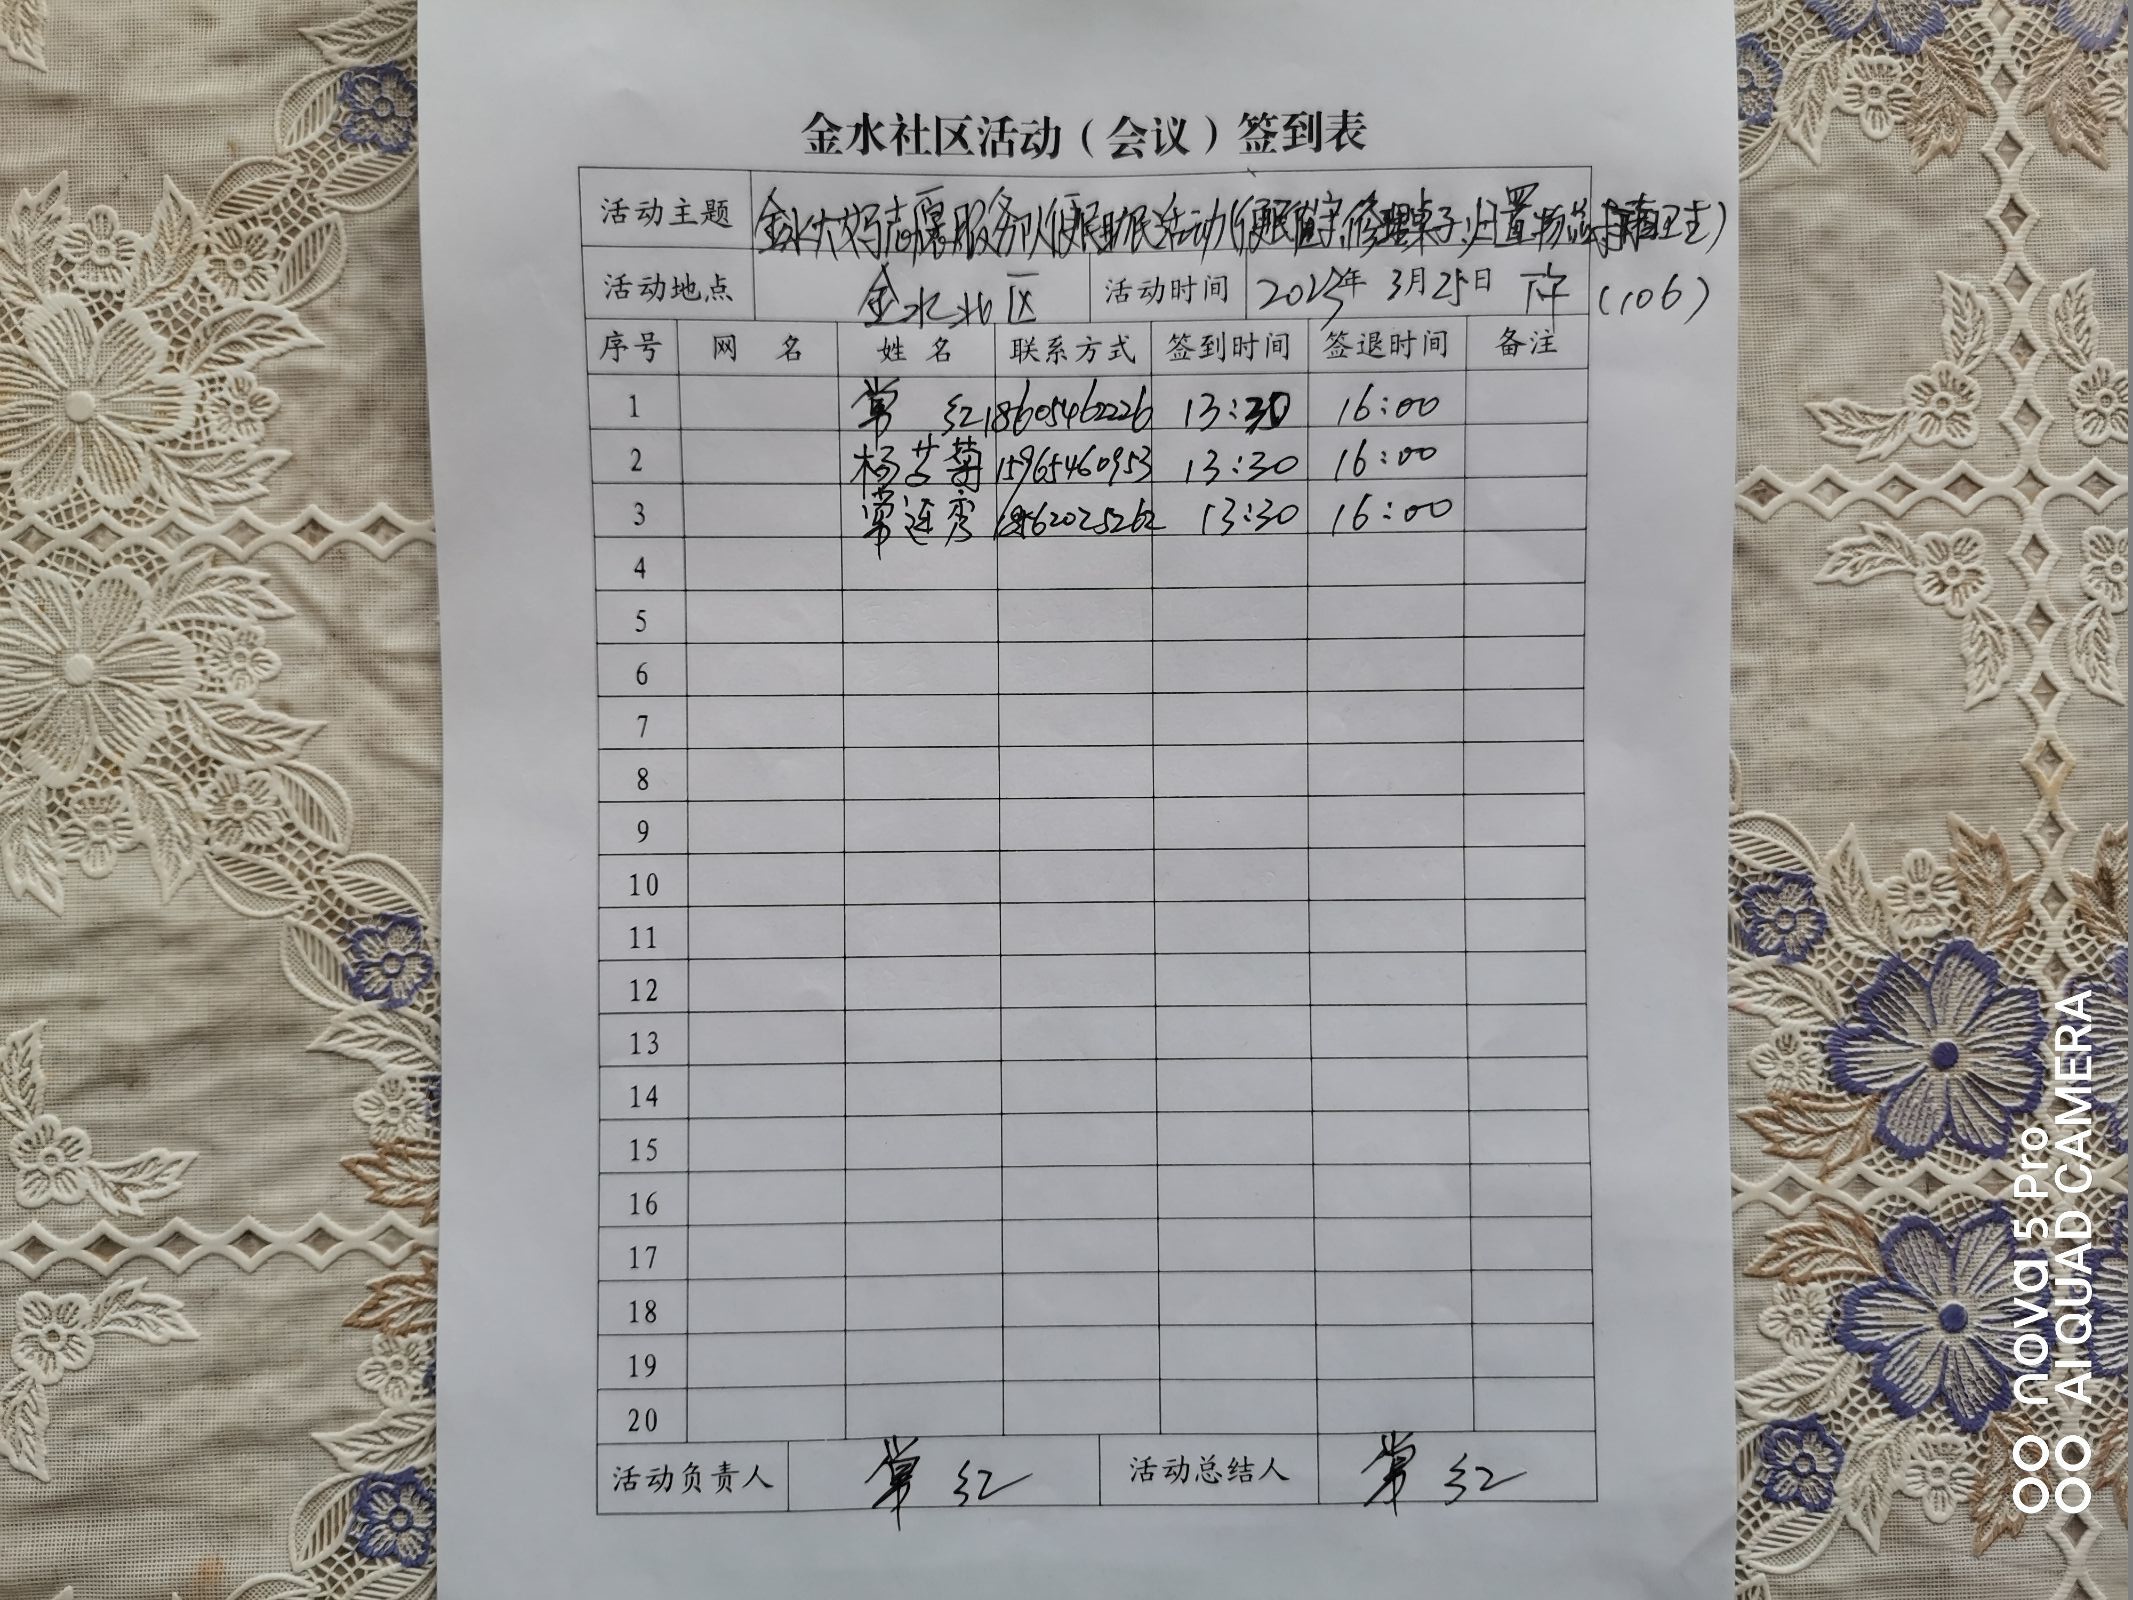 金水社区活动（会议）签到表
活动主题 金水大妈志愿服务队便民助民活动(便民值守.修理桌子.归置物品.打扫卫生)
活动地点 金水北区 活动时间 2023年 3月25日 下午 (106)
序号 网 名 姓 名 联系方式 签到时间 签退时间 备注
1 常 红 18605462226 13:30 16:00
2 杨 菊 15965460953 13:30 16:00
3 常连秀 13:30 16:00
4
5
6
7
8
9
10
11
12
13
14
15
16
17
18
19
20
活动负责人 常 红 活动总结人 常 红
nova 5 Pro
AI QUAD CAMERA